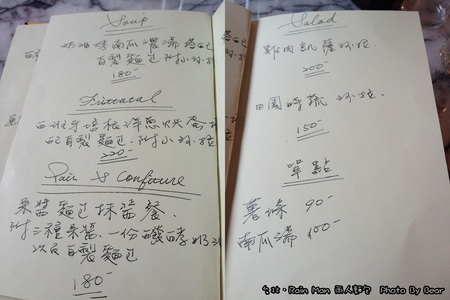 Soup
奶油烤南瓜濃湯 搭配
自製麵包 附小沙拉
180-
西班牙培根洋蔥烘蛋
配自製麵包、附小沙拉
220-
Pain & Confiture
果醬麵包抹醬餐、
附三種果醬、一份
次良自製麵包
180-
Salad
雞肉凱薩沙拉
200-
田園時蔬 沙拉
150-
單點
薯條 90-
南瓜湯 100-
台北‧Rain Man 雨人計劃 Photo By Dear